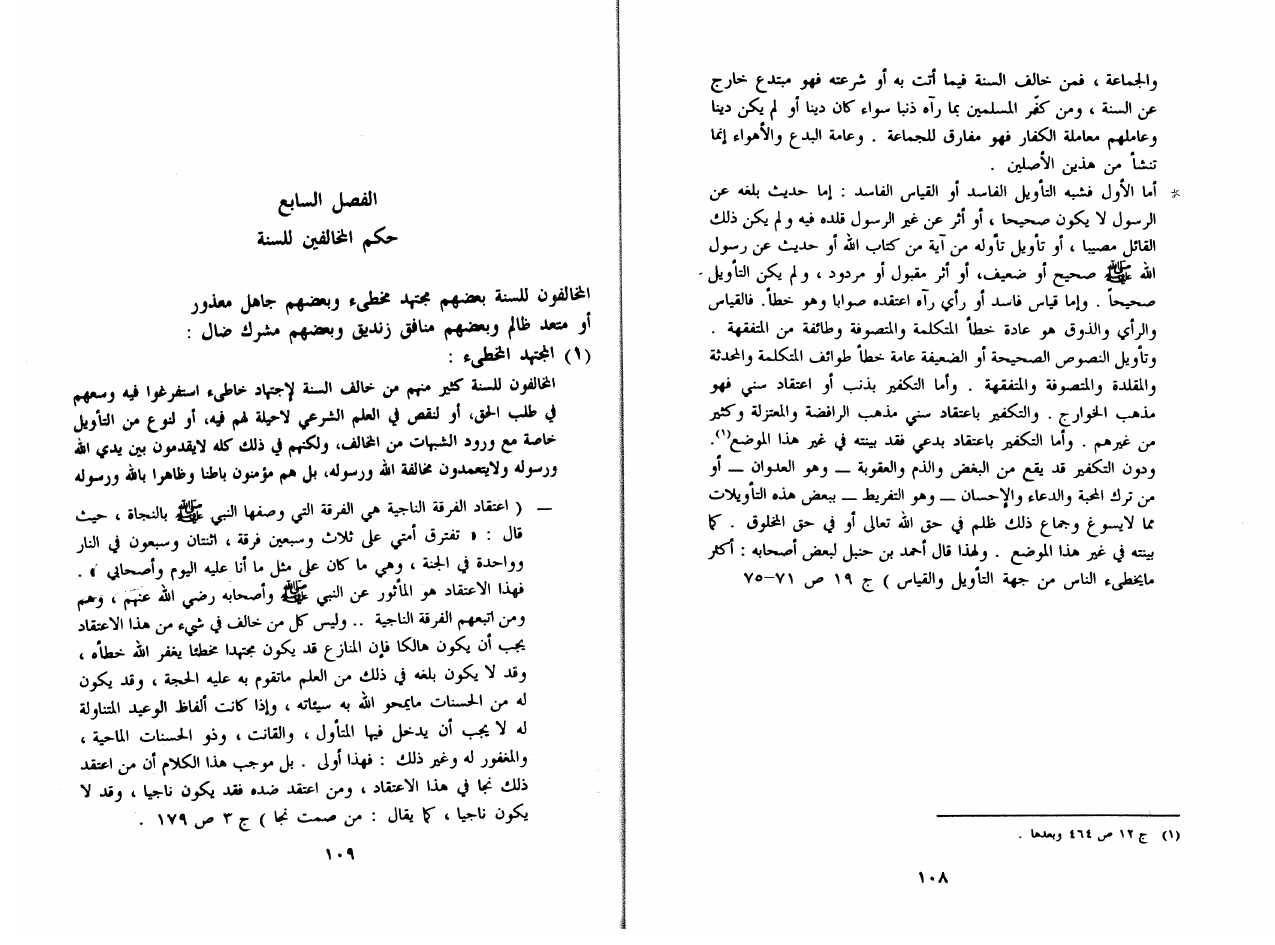 والجماعة ، فمن خالف السنة فيما أتت به أو شرعته فهو مبتدع خارج
عن السنة ، ومن كفّر المسلمين بما رآه ذنبا سواء كان دينا أو لم يكن دينا
وعاملهم معاملة الكفار فهو مفارق للجماعة . وعامة البدع والأهواء إنما
تنشأ من هذين الأصلين .
* أما الأول فشبه التأويل الفاسد أو القياس الفاسد : إما حديث بلغه عن
الرسول لا يكون صحيحا ، أو أثر عن غير الرسول قلده فيه ولم يكن ذلك
القائل مصيبا ، أو تأويل تأوله من آية من كتاب الله أو حديث عن رسول
الله ﷺ صحيح أو ضعيف، أو أثر مقبول أو مردود ، ولم يكن التأويل
صحيحاً . وإما قياس فاسد أو رأي رآه اعتقده صوابا وهو خطأ. فالقياس
والرأي والذوق هو عادة خطأ المتكلمة والمتصوفة وطائفة من المتفقهة .
وتأويل النصوص الصحيحة أو الضعيفة عامة خطأ طوائف المتكلمة والمحدثة
والمقلدة والمتصوفة والمتفقهة . وأما التكفير بذنب أو اعتقاد سني فهو
مذهب الخوارج . والتكفير باعتقاد سني مذهب الرافضة والمعتزلة وكثير
من غيرهم . وأما التكفير باعتقاد بدعي فقد بينته في غير هذا الموضع(١).
ودون التكفير قد يقع من البغض والذم والعقوبة ــ وهو العدوان ــ أو
من ترك المحبة والدعاء والإحسان ــ وهو التفريط ــ ببعض هذه التأويلات
مما لايسوغ وجماع ذلك ظلم في حق الله تعالى أو في حق المخلوق . كما
بينته في غير هذا الموضع . ولهذا قال أحمد بن حنبل لبعض أصحابه : أكثر
مايخطيء الناس من جهة التأويل والقياس ) ج ١٩ ص ٧١–٧٥
(١) ج ١٢ ص ٤٦٤ وبعدها .
١٠٨
الفصل السابع
حكم المخالفين للسنة
المخالفون للسنة بعضهم مجتهد مخطيء وبعضهم جاهل معذور
أو متعد ظالم وبعضهم منافق زنديق وبعضهم مشرك ضال :
(١) المجتهد المخطيء :
المخالفون للسنة كثير منهم من خالف السنة لإجتهاد خاطيء استفرغوا فيه وسعهم
في طلب الحق، أو لنقص في العلم الشرعي لاحيلة لهم فيه، أو لنوع من التأويل
خاصة مع ورود الشبهات من المخالف، ولكنهم في ذلك كله لايقدمون بين يدي الله
ورسوله ولايتعمدون مخالفة الله ورسوله، بل هم مؤمنون باطنا وظاهرا بالله ورسوله
ــ ( اعتقاد الفرقة الناجية هي الفرقة التي وصفها النبي ﷺ بالنجاة ، حيث
قال : « تفترق أمتي على ثلاث وسبعين فرقة ، اثنتان وسبعون في النار
وواحدة في الجنة ، وهي ما كان على مثل ما أنا عليه اليوم وأصحابي » .
فهذا الاعتقاد هو المأثور عن النبي ﷺ وأصحابه رضي الله عنهم ، وهم
ومن اتبعهم الفرقة الناجية .. وليس كل من خالف في شيء من هذا الاعتقاد
يجب أن يكون هالكا فإن المنازع قد يكون مجتهدا مخطئا يغفر الله خطأه ،
وقد لا يكون بلغه في ذلك من العلم ماتقوم به عليه الحجة ، وقد يكون
له من الحسنات مايمحو الله به سيئاته ، وإذا كانت ألفاظ الوعيد المتناولة
له لا يجب أن يدخل فيها المتأول ، والقانت ، وذو الحسنات الماحية ،
والمغفور له وغير ذلك : فهذا أولى . بل موجب هذا الكلام أن من اعتقد
ذلك نجا في هذا الاعتقاد ، ومن اعتقد ضده فقد يكون ناجيا ، وقد لا
يكون ناجيا ، كما يقال : من صمت نجا ) ج ٣ ص ١٧٩ .
١٠٩